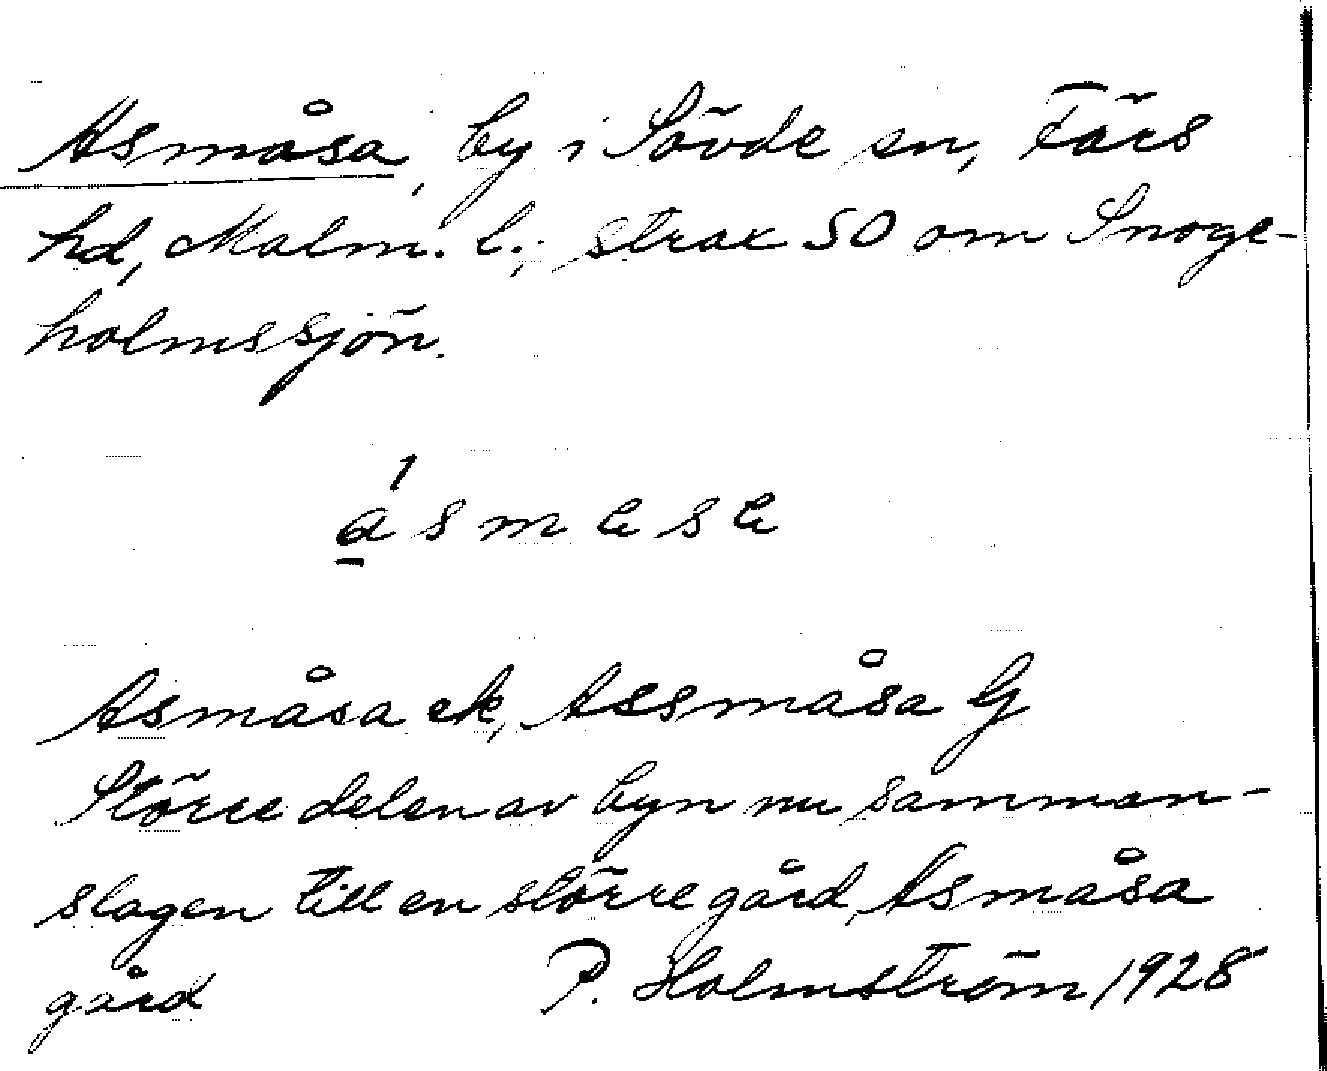 Asmåsa, by i Sövde sn, Färs
hd, Malm. l.; strax SO om Snoge-
holmssjön.
Asmåsa ek, Assmåsa G
Större delen av byn nu samman-
slagen till en större gård, Asmåsa
gård P. Holmström 1928